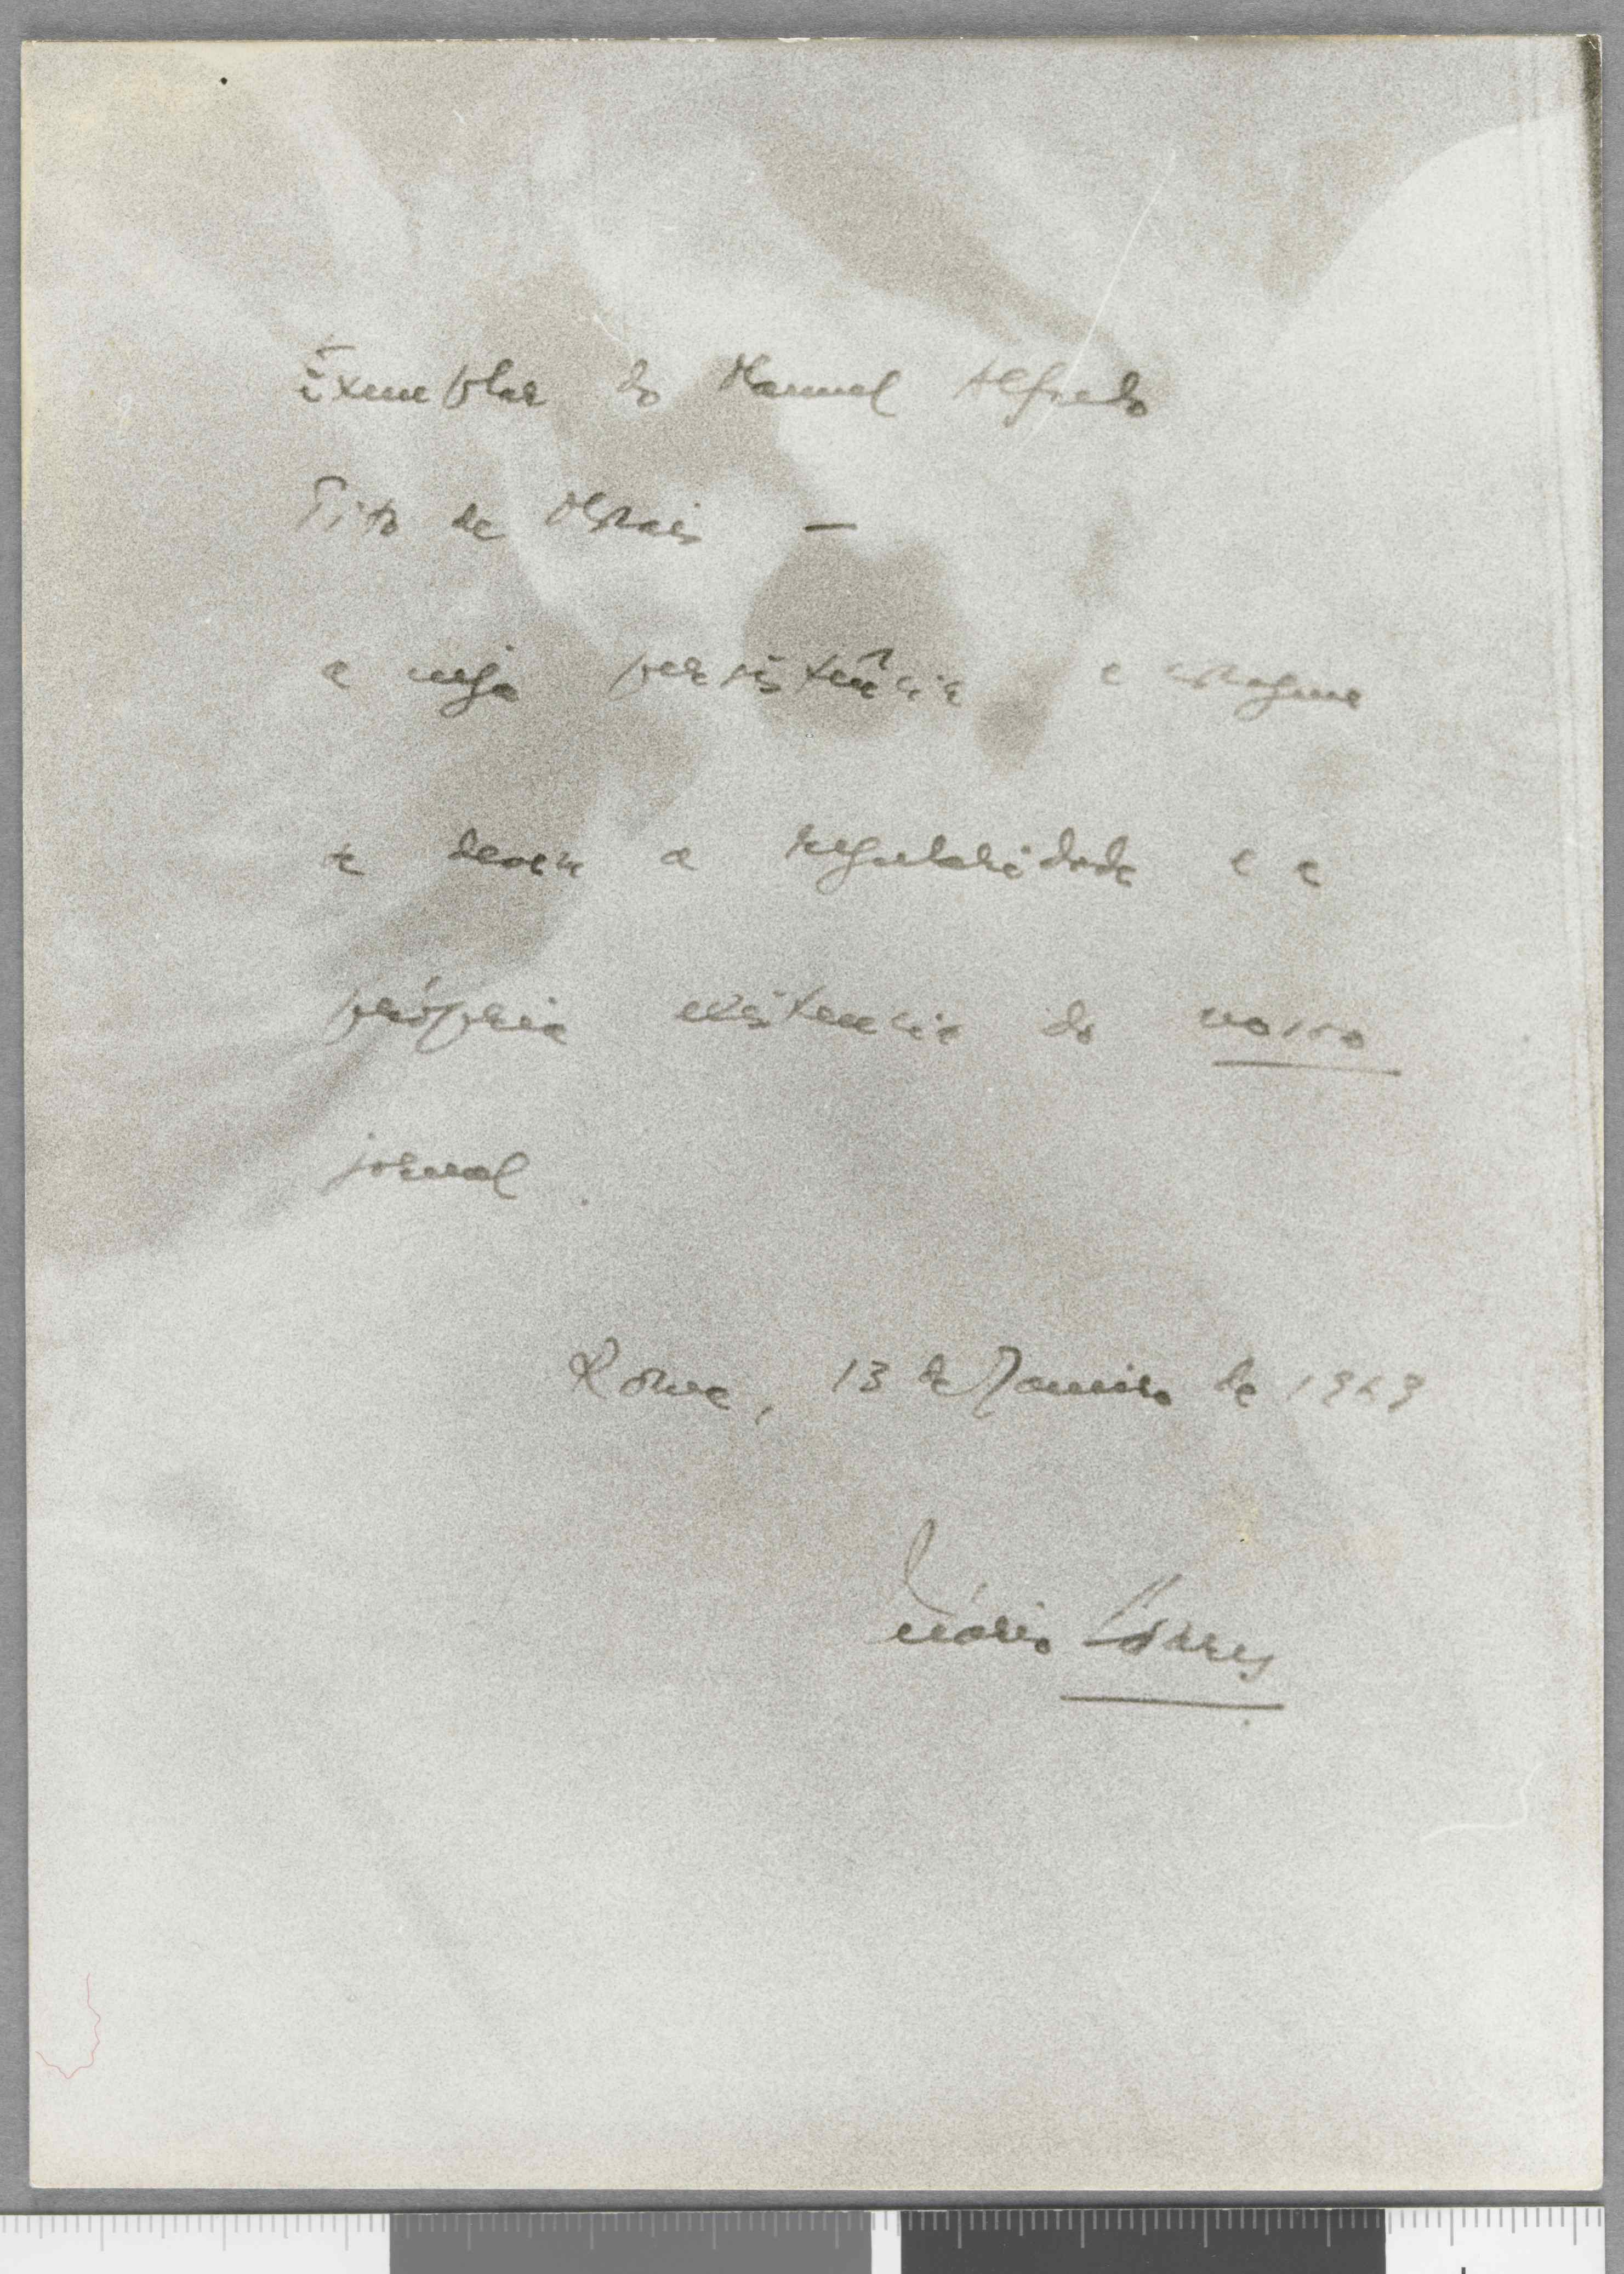 Exemplar do Manuel Alfredo
Tito de Morais —
a cuja persistência e coragem
se devem a regularidade e a
própria existencia do nosso
jornal.
Roma, 13 de Janeiro de 1969
Mário Soares